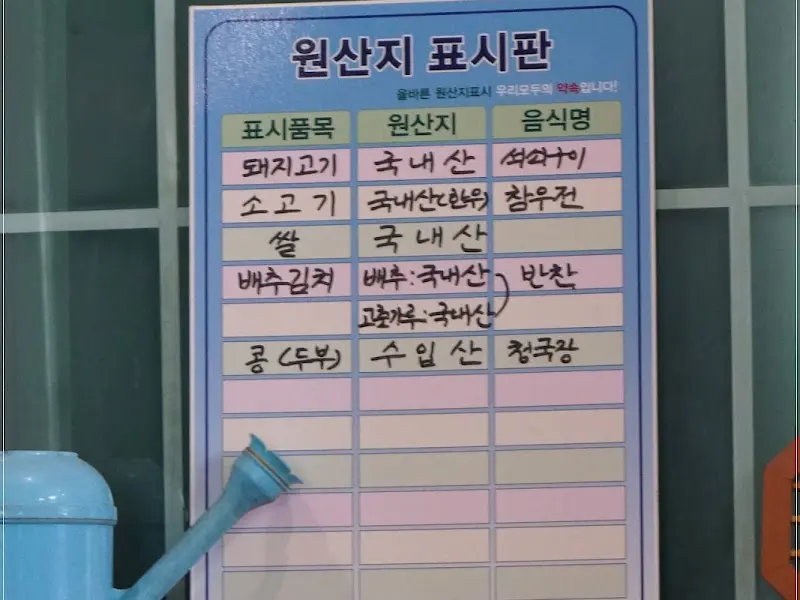 원산지 표시판
올바른 원산지표시 우리모두의 약속입니다!
표시품목 원산지 음식명
돼지고기 국내산 석쇠구이
소고기 국내산(한우) 참우전
쌀 국내산
배추김치 배추:국내산 반찬
고춧가루:국내산
콩(두부) 수입산 청국장